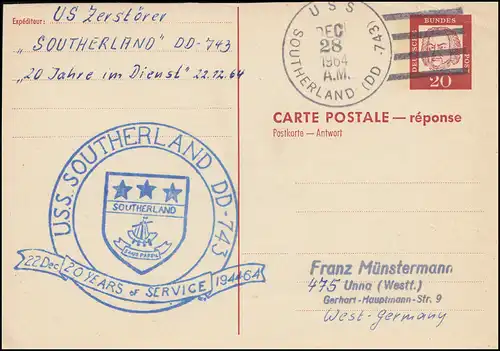 Expéditeur: US Zerstörer
"SOUTHERLAND" DD-743
"20 Jahre im Dienst" 22.12.64
U S S
DEC
28
1964
A.M.
SOUTHERLAND (DD-743)
DEUTSCHE BUNDESPOST
20
CARTE POSTALE — réponse
Postkarte — Antwort
U.S.S. SOUTHERLAND DD-743
SOUTHERLAND
22 Dec 20 YEARS of SERVICE 1944-64
Franz Münstermann
475 Unna (Westf.)
Gerhart-Hauptmann-Str. 9
West-Germany